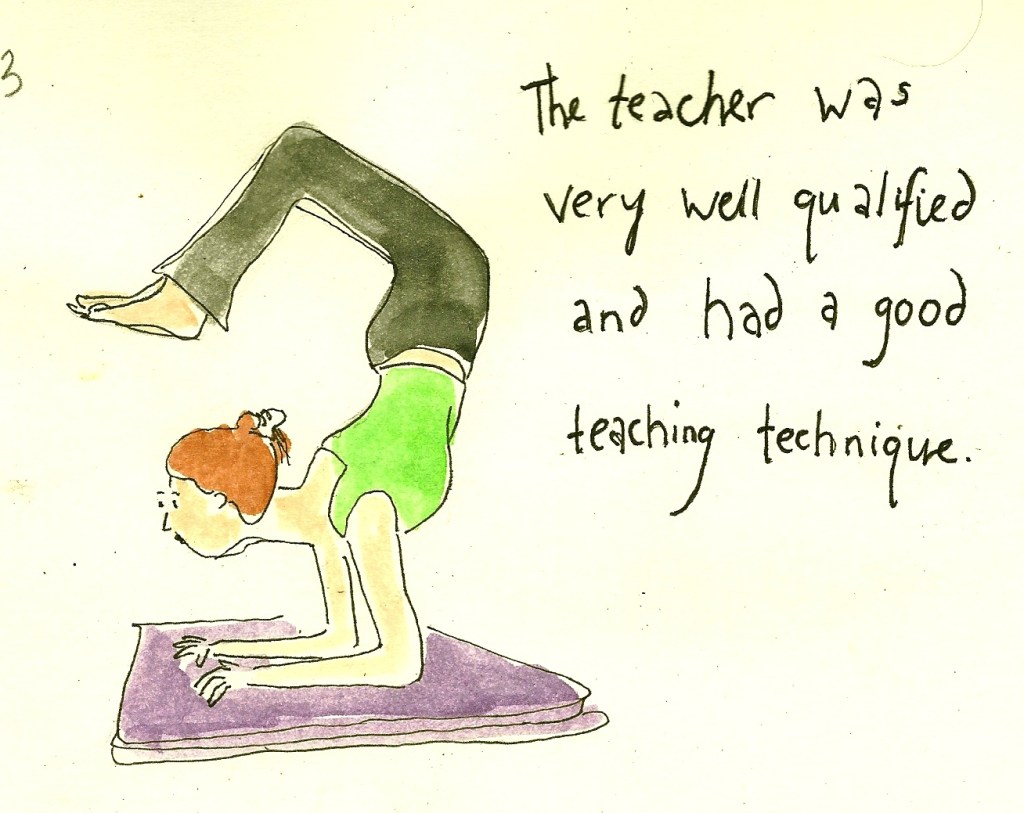 3
The teacher was
very well qualified
and had a good
teaching technique.